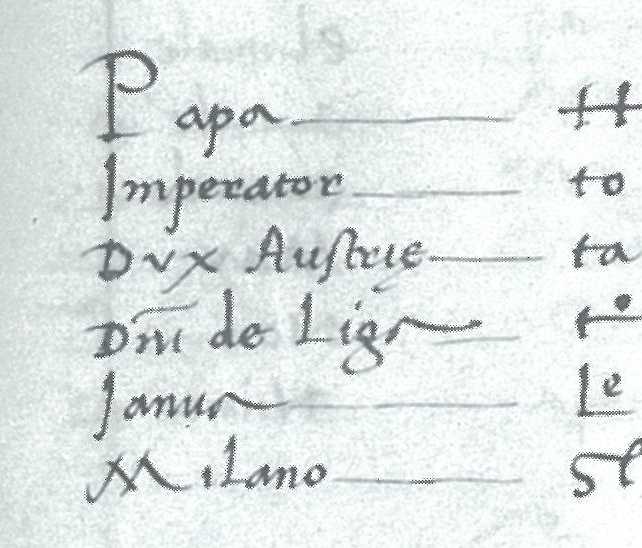 Papa ——— tt
Imperator ——— to
Dux Austrie ——— ta
Dñi de Liga ——— t
Janua ——— Le
Milano ——— st